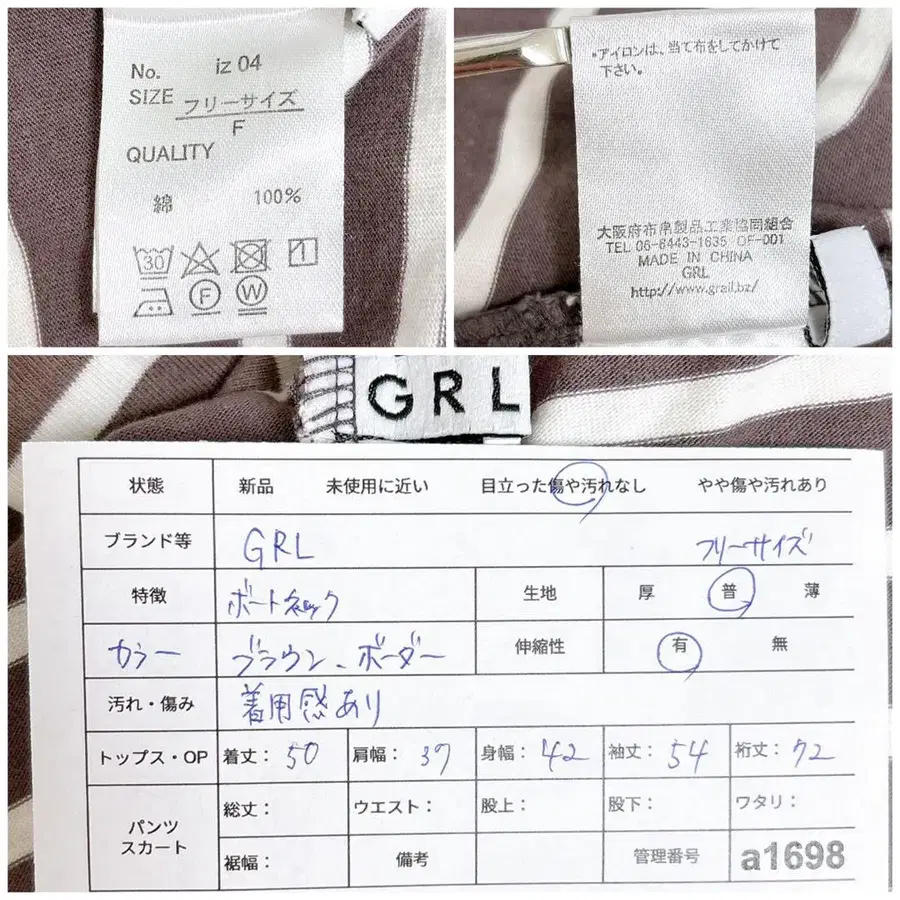 No. iz 04
SIZE フリーサイズ
F
QUALITY
綿 100%
30
1
F W
•アイロンは、当て布をしてかけて
下さい。
大阪府布帛製品工業協同組合
TEL 06-6443-1635 OF-001
MADE IN CHINA
GRL
http://www.grail.bz/
GRL
状態 新品 未使用に近い 目立った傷や汚れなし やや傷や汚れあり
ブランド等 GRL フリーサイズ
特徴 ボートネック 生地 厚 普 薄
カラー ブラウン、ボーダー 伸縮性 有 無
汚れ・傷み 着用感あり
トップス・OP 着丈: 50 肩幅: 37 身幅: 42 袖丈: 54 裄丈: 72
パンツ
スカート
総丈: ウエスト: 股上: 股下: ワタリ:
裾幅: 備考 管理番号 a1698